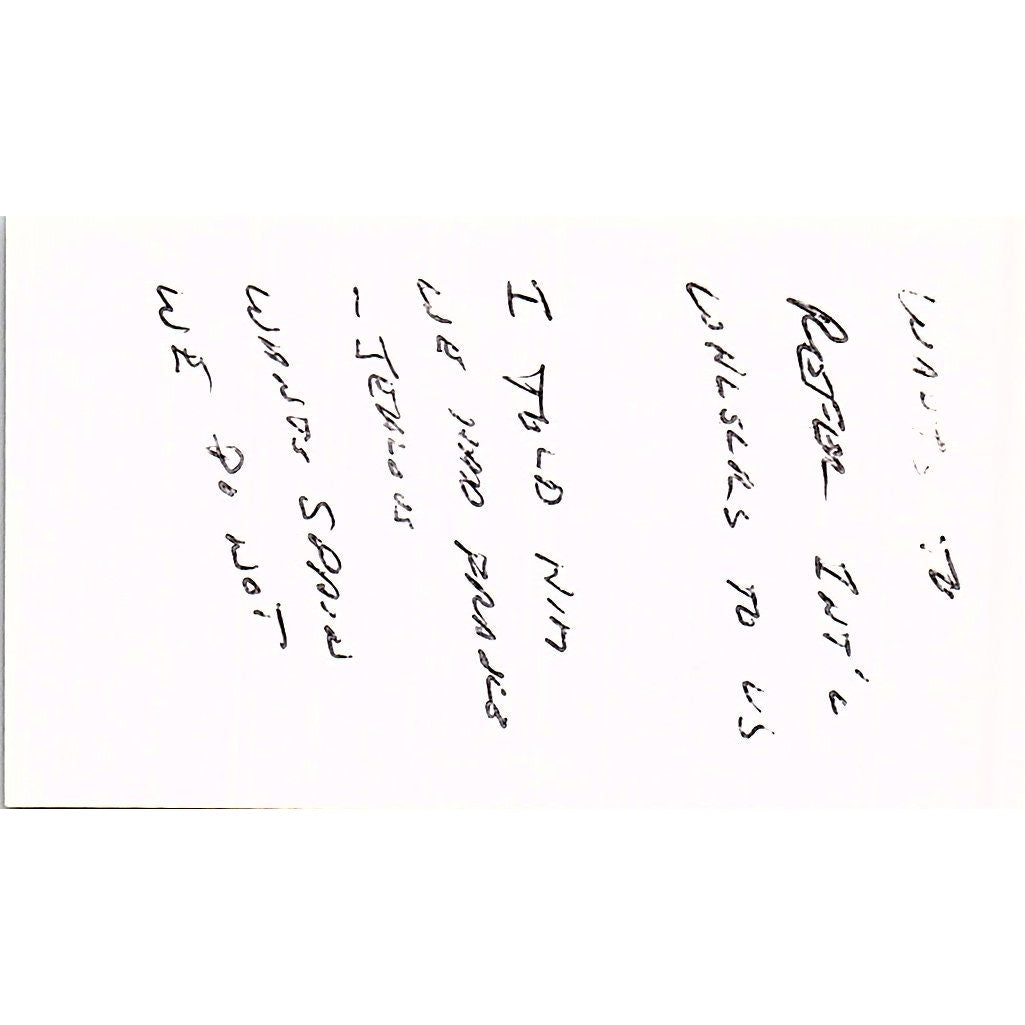 WANTS TO
REFER INT'L
WHLSLRS TO US
I TOLD HIM
WE HAD
- JEALOUS
WANTS SPAIN
WE DO NOT